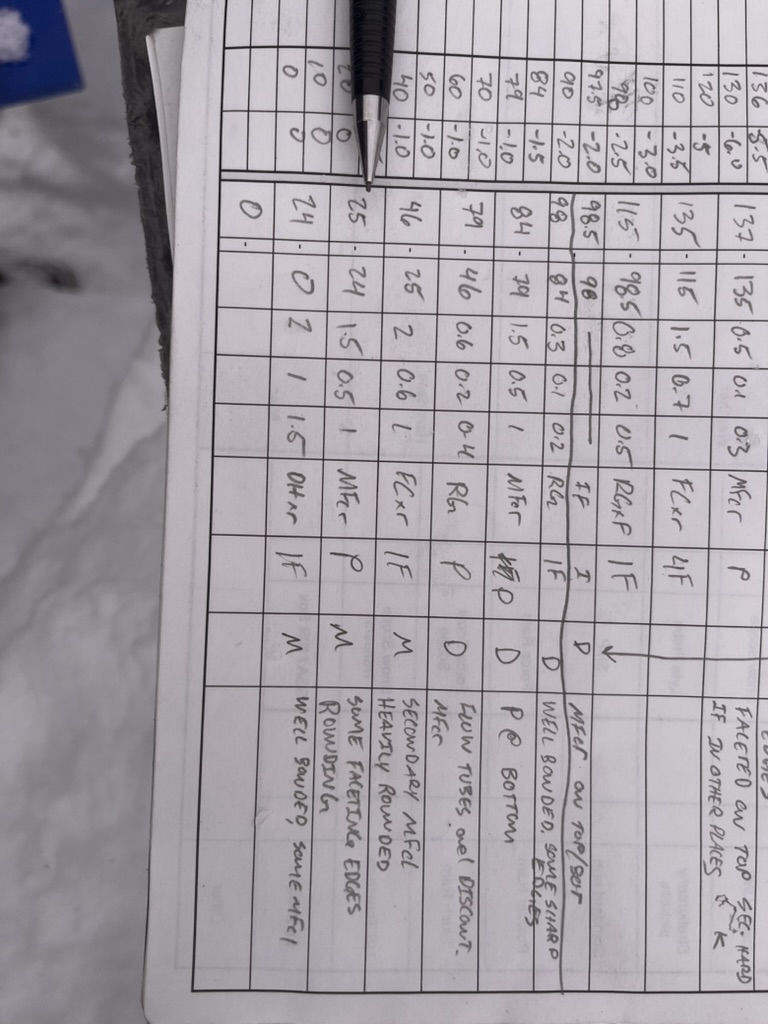 EDGES
136 -5.5
130 -6.0 137 - 135 0.5 0.1 0.3 MFcr P FACETED ON TOP SEC. HARD
IF IN OTHER PLACES K
120 -5
110 -3.5 135 - 115 1.5 0.7 1 FCxr 4F
100 -3.0
-2.5 115 - 98.5 0.8 0.2 0.5 RGxf 1F
97.5 -2.0 98.5 98 IF I D MFcr ON TOP/BOT
90 -2.0 98 84 0.3 0.1 0.2 RG 1F D WELL BONDED, SOME SHARP
EDGES
84 -1.5
79 -1.0 84 - 79 1.5 0.5 1 MFcr P D P @ BOTTOM
70 -1.0 79 - 46 0.6 0.2 0.4 RG P D FLOW TUBES and DISCONT.
MFcr
60 -1.0
50 -1.0
40 -1.0 46 - 25 2 0.6 1 FCxr 1F M SECONDARY MFcl
HEAVILY ROUNDED
20 0 25 - 24 1.5 0.5 1 MFcr P M SOME FACETING EDGES
ROUNDING
10 0
0 0 24 - 0 2 1 1.5 DHxr 1F M WELL BONDED, SOME MFcl
0 -